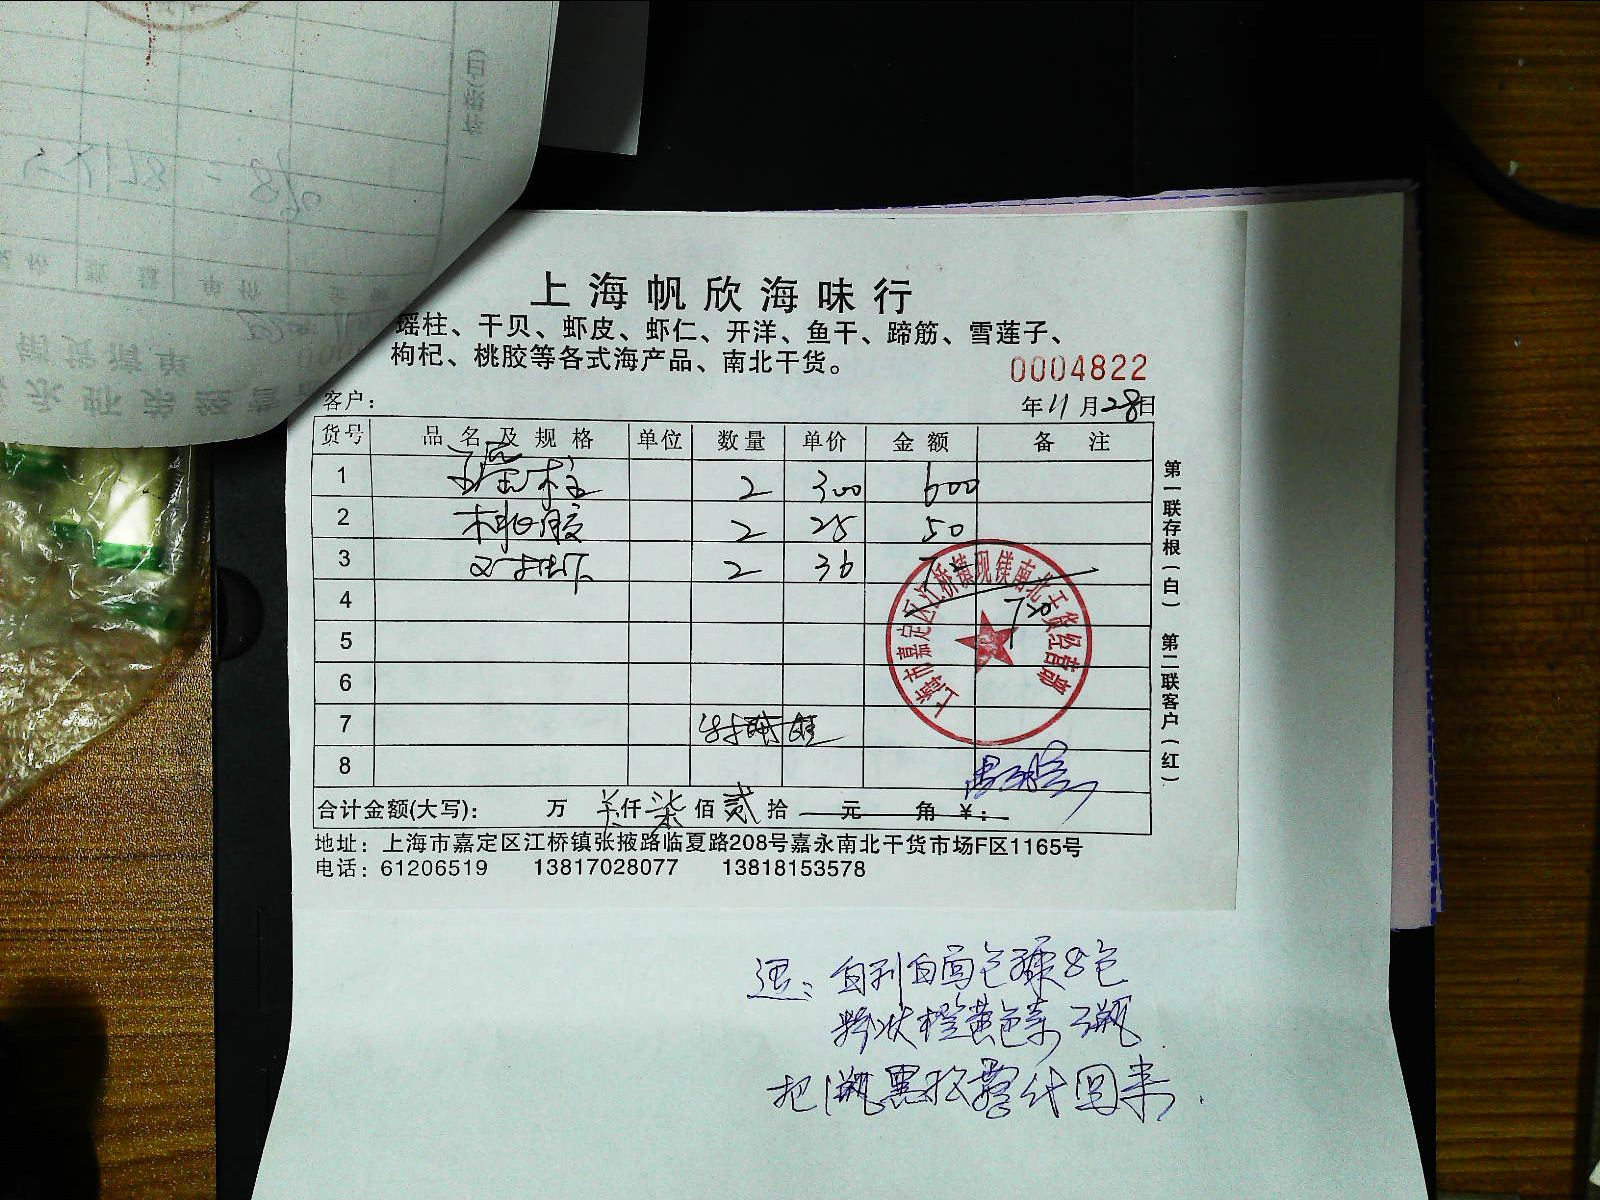 上海帆欣海味行
瑶柱、干贝、虾皮、虾仁、开洋、鱼干、蹄筋、雪莲子、
枸杞、桃胶等各式海产品、南北干货。
0004822
客户：
年 11 月 28 日
货号 品名及规格 单位 数量 单价 金额 备注
1 瑶柱 2 300 600
2 桃胶 2 25 50
3 2 36
4 720
5
6
7
8
合计金额(大写)： 万 仟 柒 佰 贰 拾 元 角 ¥：
地址：上海市嘉定区江桥镇张掖路临夏路208号嘉永南北干货市场F区1165号
电话：61206519 13817028077 13818153578
第一联存根（白） 第二联客户（红）
上海市嘉定区江桥镇现镁南北干货经营部
白面包糠8包
橙黄色素 瓶
把1瓶黑 回来.
5×178=890